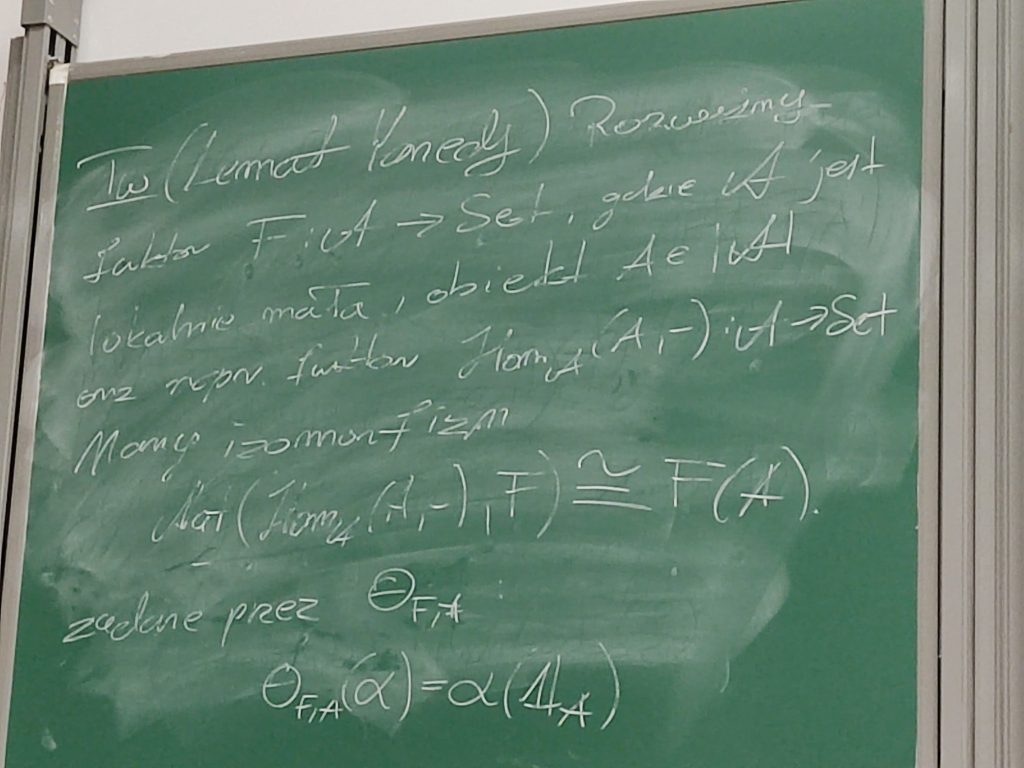 Tw (Lemat Yonedy) Rozważmy
funktor F : 𝒜 → Set, gdzie 𝒜 jest
lokalnie mała, obiekt A ∈ |𝒜|
oraz repr. funktor Hom_𝒜(A,-) : 𝒜 → Set
Mamy izomorfizm
Nat(Hom_𝒜(A,-), F) ≅ F(A).
zadane przez Θ_{F,A}
Θ_{F,A}(α) = α(1_A)